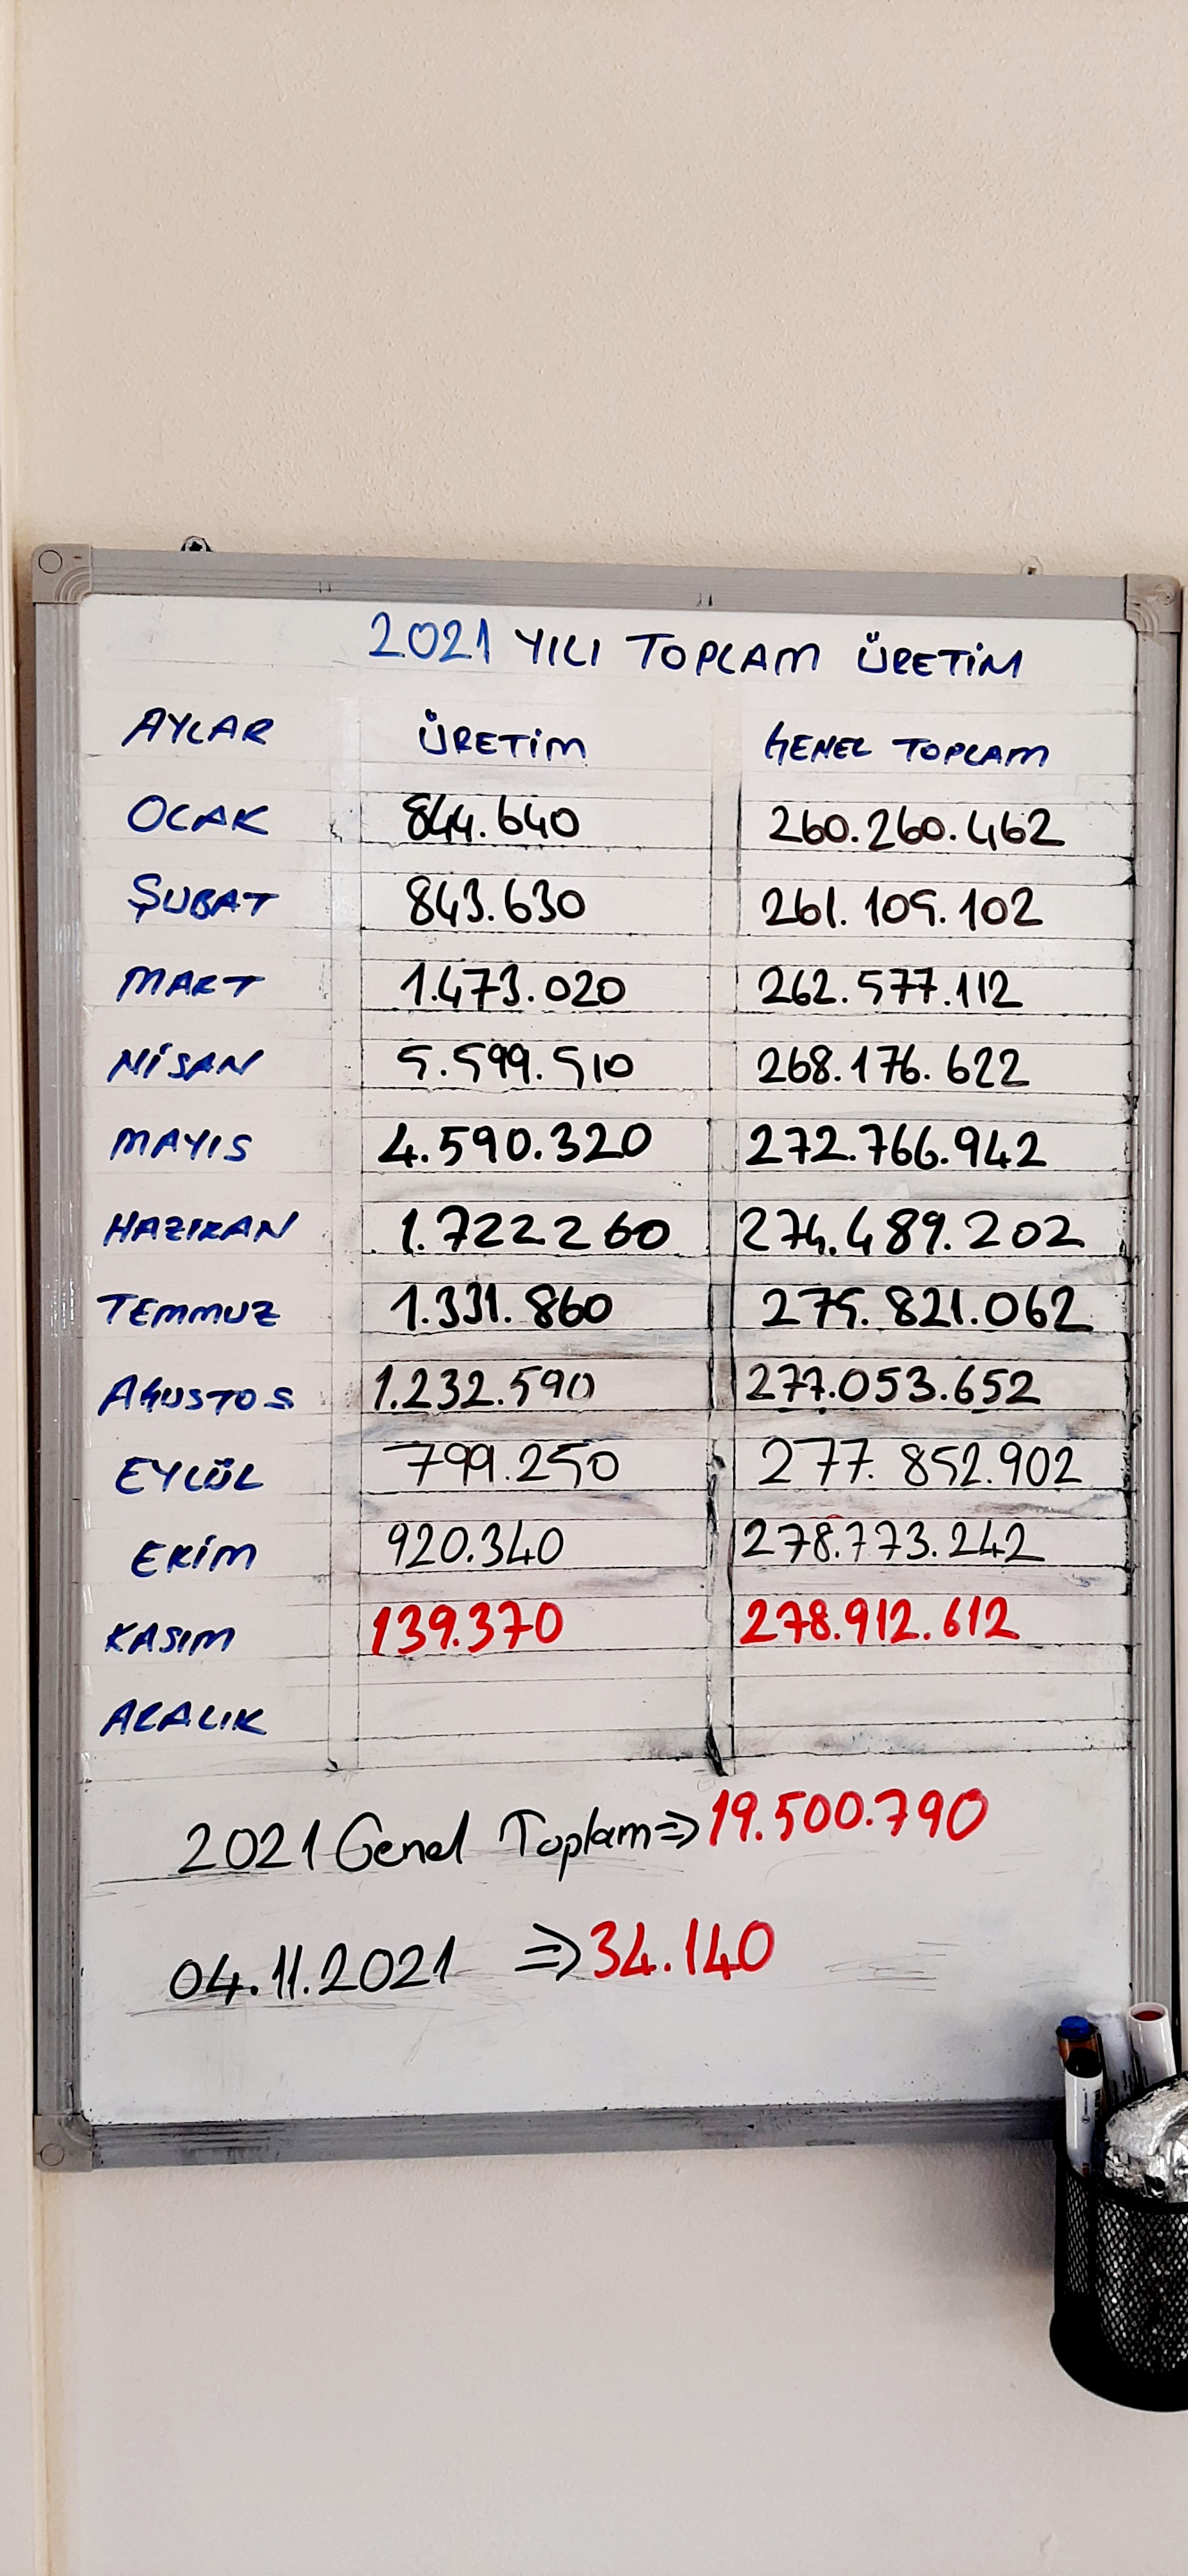 2021 YILI TOPLAM ÜRETİM
AYLAR ÜRETİM GENEL TOPLAM
OCAK 844.640 260.260.462
ŞUBAT 843.630 261.109.102
MART 1.473.020 262.577.112
NİSAN 5.599.510 268.176.622
MAYIS 4.590.320 272.766.942
HAZIRAN 1.722.260 274.489.202
TEMMUZ 1.331.860 275.821.062
AĞUSTOS 1.232.590 277.053.652
EYLÜL 799.250 277.852.902
EKİM 920.340 278.773.242
KASIM 139.370 278.912.612
ARALIK
2021 Genel Toplam⇒ 19.500.790
04.11.2021 ⇒ 34.140